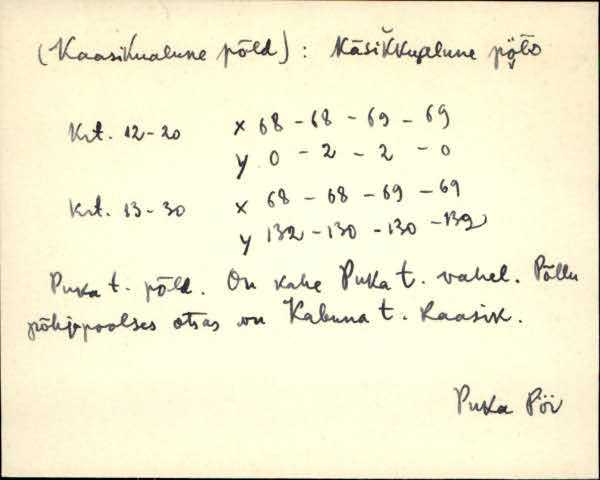 (Kaasikualune põld) : KāsiK̆kualune põ̭l̀o
Krt. 12-20 x 68 - 68 - 69 - 69
y 0 - 2 - 2 - 0
Krt. 13-30 x 68 - 68 - 69 - 69
y 132 - 130 - 130 - 132
Puka t. põld. On kahe Puka t. vahel. Põllu
põhjapoolses otsas on Kabuna t. kaasik.
Puka Pöi